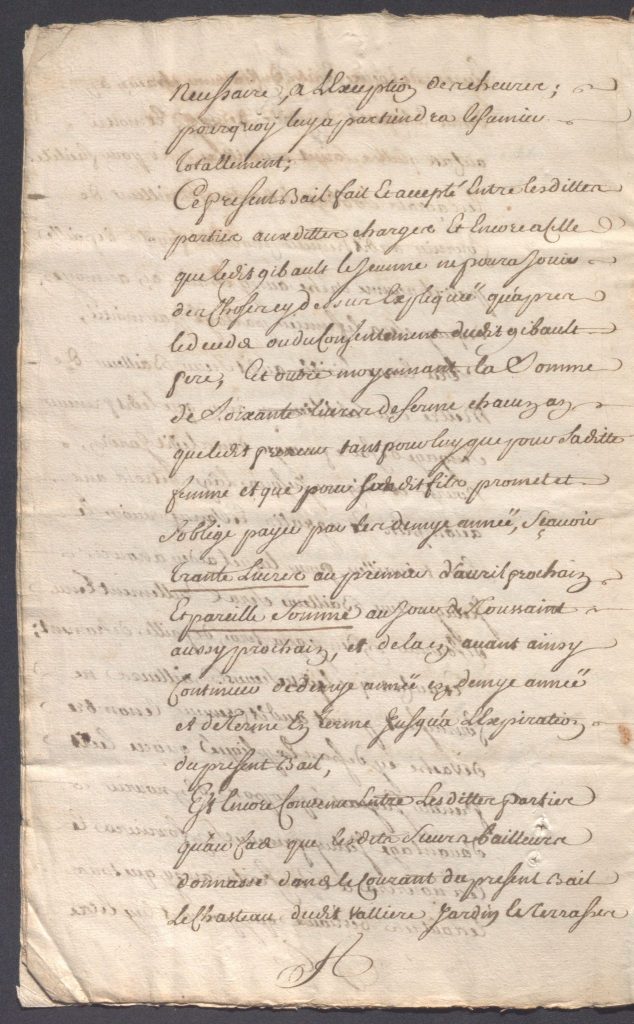 necessaire, a L'Exception de recheuter;
pourquoy luy apartiendra le fumier
totallement;
Ce present Bail fait Et accepté Entre lesdittes
parties aux dittes charges Et Encore a Celle
que ledit gibault le Jeunne ne poura Jouir
des Choses cy dessus Expliqueé qu'apres
le deceds ou du Consentement dudit gibault
pere, Et outre moyennant la Somme
de Soixante Livres de ferme chacun an
que ledit preneur tant pour luy que pour Saditte
femme et que pour sondit fils promet et
s'oblige payer par les demye anneé, Sçavoir
trante Livres au premier d'avril prochain
Et pareille Somme au Jour de Toussaint
aussy prochain, et de la en avant ainsy
Continuer de demye anneé en demye anneé
et de terme En terme Jusqu'a L'Expiration
du present Bail,
Est Encore Convenu Entre Lesdittes parties
qu'au Cas que lesdits Sieurs Bailleurs
donnasse dans le Courant du present Bail
Le Chasteau dudit Valliere Jardin le Terrasses